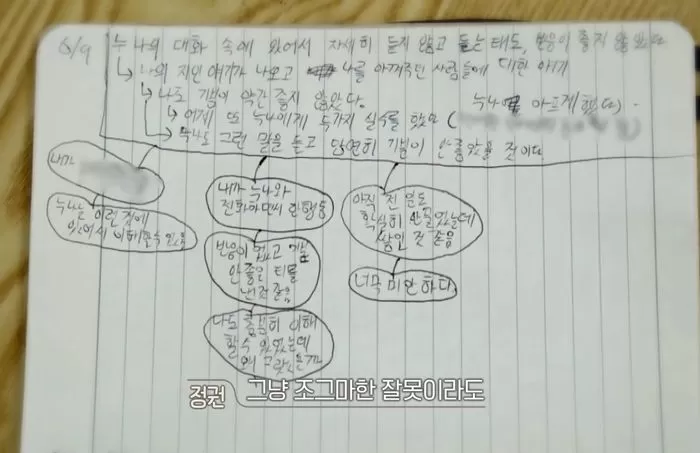 6/9 누나의 대화 속에 있어서 자세히 듣지 않고 듣는 태도, 반응이 좋지 않았다
↳ 나의 지인 얘기가 나오고 나를 아껴주던 사람들에 대한 얘기
↳ 나도 기분이 약간 좋지 않았다.
누나 아프게 했다)
↳ 어제 또 누나에게 두가지 실수를 했고 (
↳ 누나도 그런 말을 듣고 당연히 기분이 안좋았을 것이다
내가
누나는 이런 점에
있어서 이해할수 있음
내가 누나와
전화하면서 한 행동
반응이 없고
안좋은 티를
낸것 같음
나도 충분히 이해
할수 있었는데
왜 그랬는가
아직 전 일도
확실히 안풀었는데
쌓인 것 같음
너무 미안하다
정권 그냥 조그마한 잘못이라도